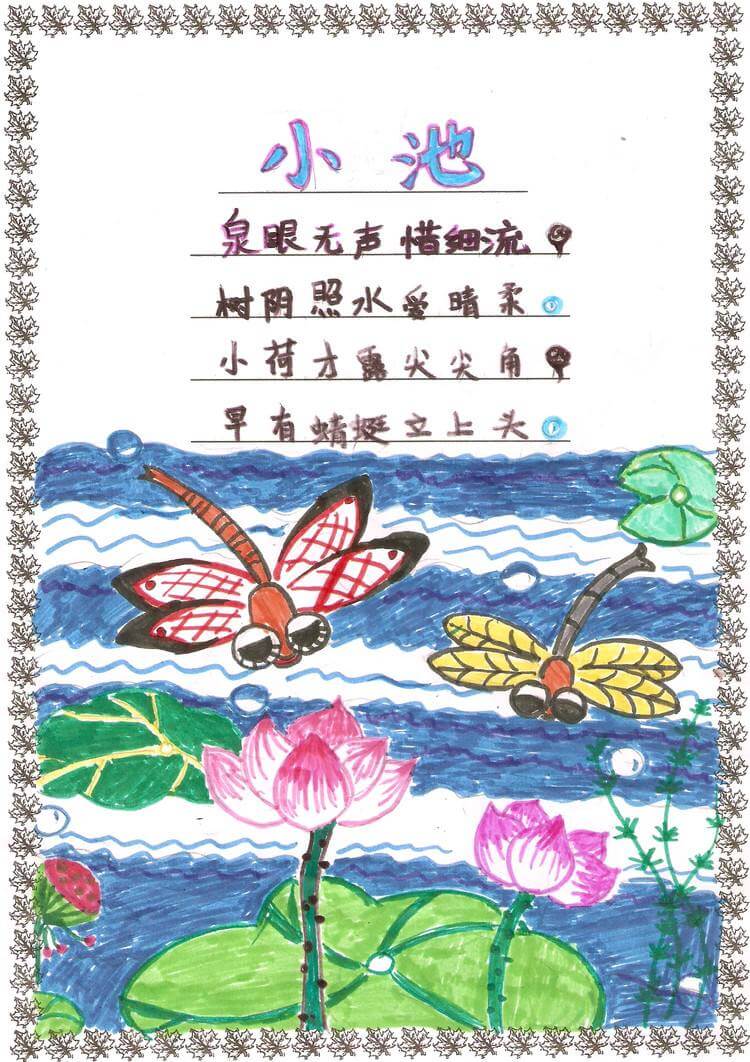 小池
泉眼无声惜细流，
树阴照水爱晴柔。
小荷才露尖尖角，
早有蜻蜓立上头。